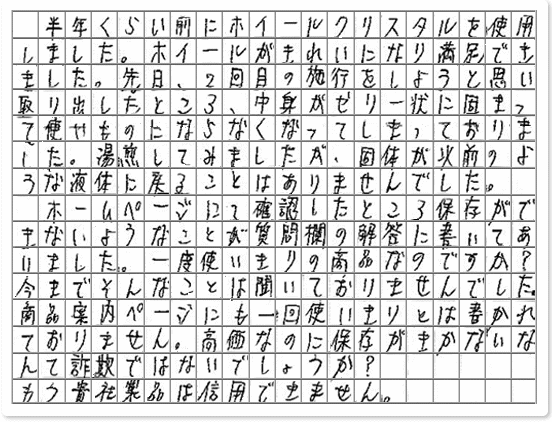 半年くらい前にホイールクリスタルを使用
しました。ホイールがきれいになり満足でき
ました。先日、2回目の施行をしようと思い
取り出したところ、中身がゼリー状に固まっ
て使やものにならなくなってしまっておりま
した。湯煎してみましたが、固体が以前のよ
うな液体に戻ることはありませんでした。
ホームページにて確認したところ保存がで
きないようなことが質問欄の解答に書いてあ
りました。一度使いきりの商品なのですか?
今までそんなことは聞いておりませんでした。
商品案内ページにも一回使いきりとは書かれ
ておりません。高価なのに保存がきかないな
んて詐欺ではないでしょうか?
もう貴社製品は信用できません。